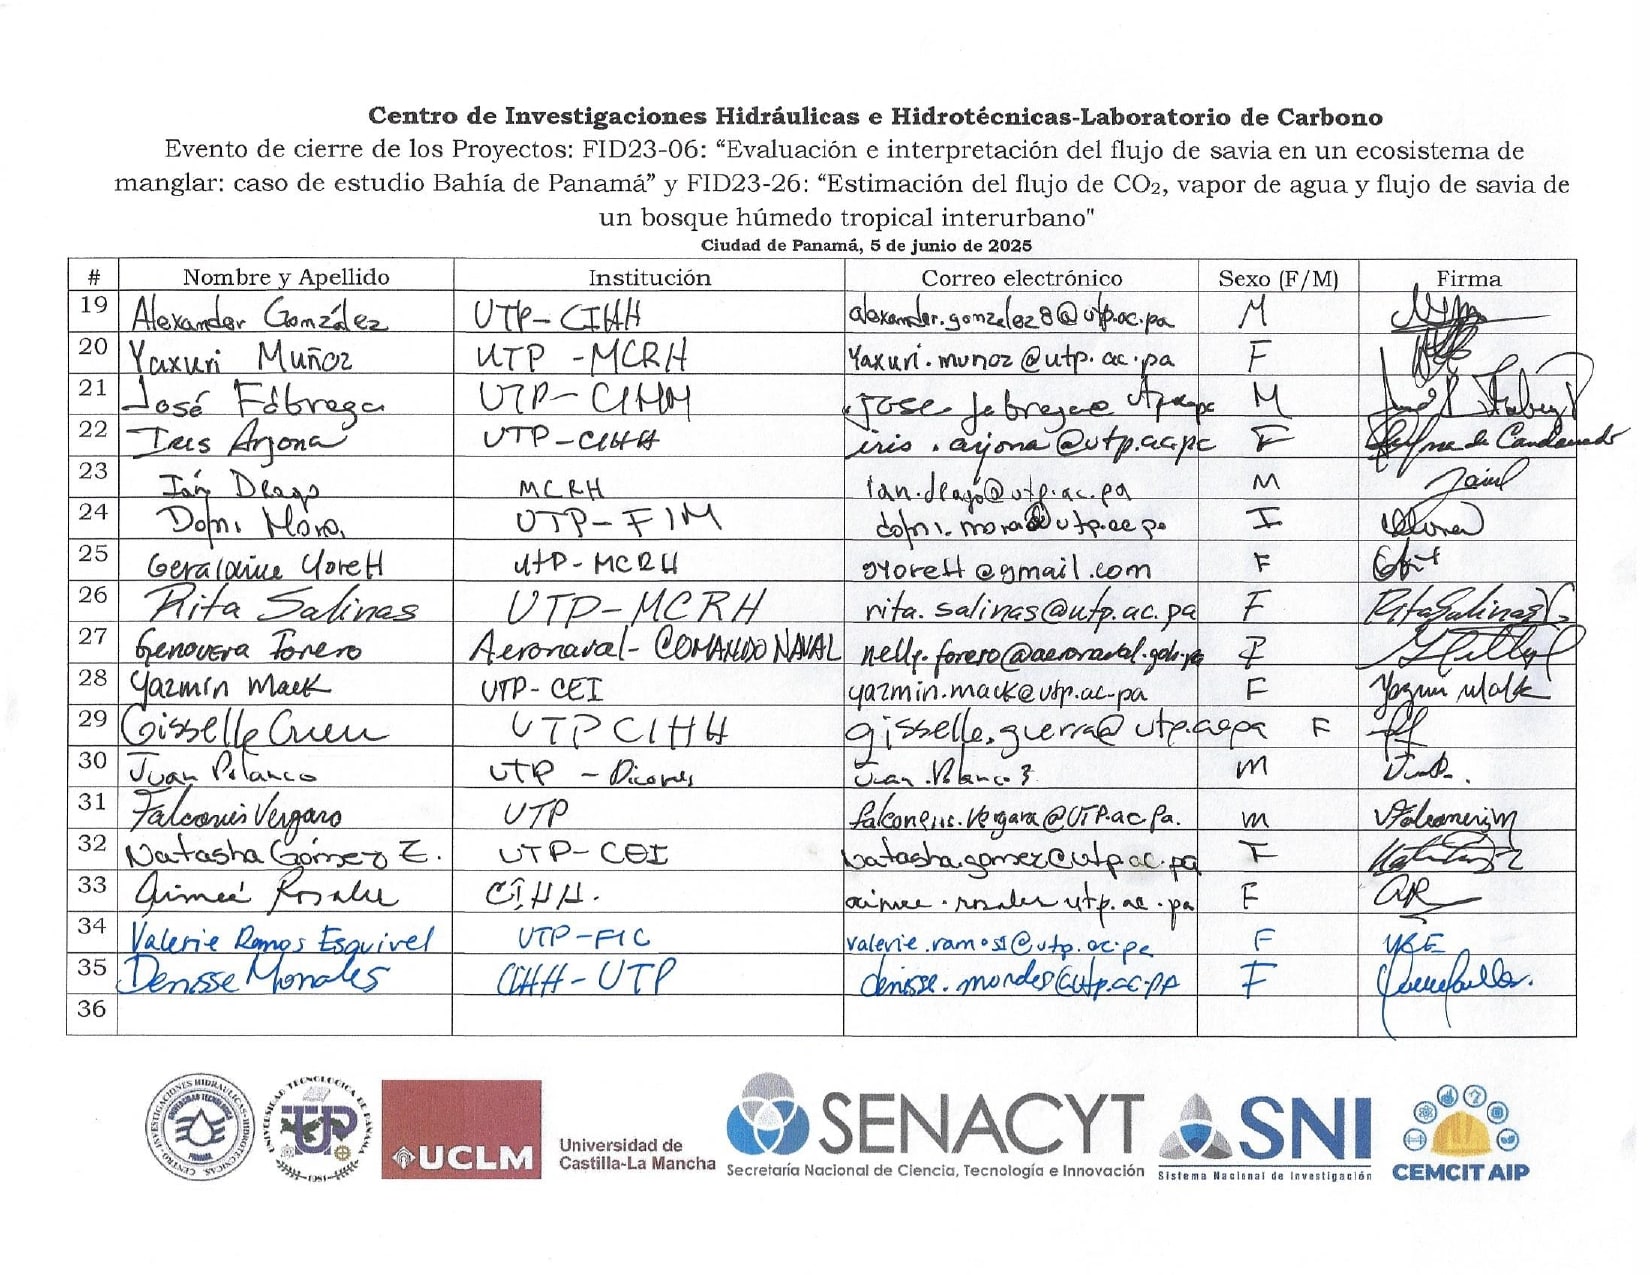 Centro de Investigaciones Hidráulicas e Hidrotécnicas-Laboratorio de Carbono
Evento de cierre de los Proyectos: FID23-06: “Evaluación e interpretación del flujo de savia en un ecosistema de
manglar: caso de estudio Bahía de Panamá” y FID23-26: “Estimación del flujo de CO₂, vapor de agua y flujo de savia de
un bosque húmedo tropical interurbano"
Ciudad de Panamá, 5 de junio de 2025
# Nombre y Apellido Institución Correo electrónico Sexo (F/M) Firma
19 Alexander González UTP-CIHH alexander.gonzalez8@utp.ac.pa M
20 Yaxuri Muñoz UTP-MCRH yaxuri.munoz@utp.ac.pa F
21 José Fábrega UTP-CIHH jose.fabrega utp.ac.pa M
22 Iris Arjona UTP-CIHH iris.arjona@utp.ac.pa F
23 Ián Drago MCRH ian.drago@utp.ac.pa M
24 Dafni Mora UTP-FIM dafni.mora@utp.ac.pa
25 Geraldine Yorett UTP-MCRH gyorett@gmail.com F
26 Rita Salinas UTP-MCRH rita.salinas@utp.ac.pa F Rita Salinas
27 Genovera Forero Aeronaval-COMANDO NAVAL nelly.forero@aeronaval.gob.pa F
28 Yazmín Mack UTP-CEI yazmin.mack@utp.ac.pa F Yazmin Mack
29 Gisselle Guerra UTP CIHH gisselle.guerra@utp.ac.pa F
30 Juan Polanco UTP - Juan.Polanco3 M
31 Falconeris Vergara UTP falconeris.vergara@UTP.ac.pa. M
32 Natasha Gómez Z. UTP-CEI natasha.gomez@utp.ac.pa F
33 Aimeé Rosales CIHH. aimee.rosales utp.ac.pa F AR
34 Valerie Ramos Esquivel UTP-FIC valerie.ramos1@utp.ac.pa F VRE
35 Denisse Morales CIHH-UTP denisse.morales@utp.ac.pa F
36
CENTRO INVESTIGACIONES HIDRAULICAS HIDROTECNICAS
UNIVERSIDAD TECNOLOGICA DE PANAMA
UTP
1981
UCLM
Universidad de
Castilla-La Mancha
SENACYT
Secretaría Nacional de Ciencia, Tecnología e Innovación
SNI
Sistema Nacional de Investigación
CEMCIT AIP